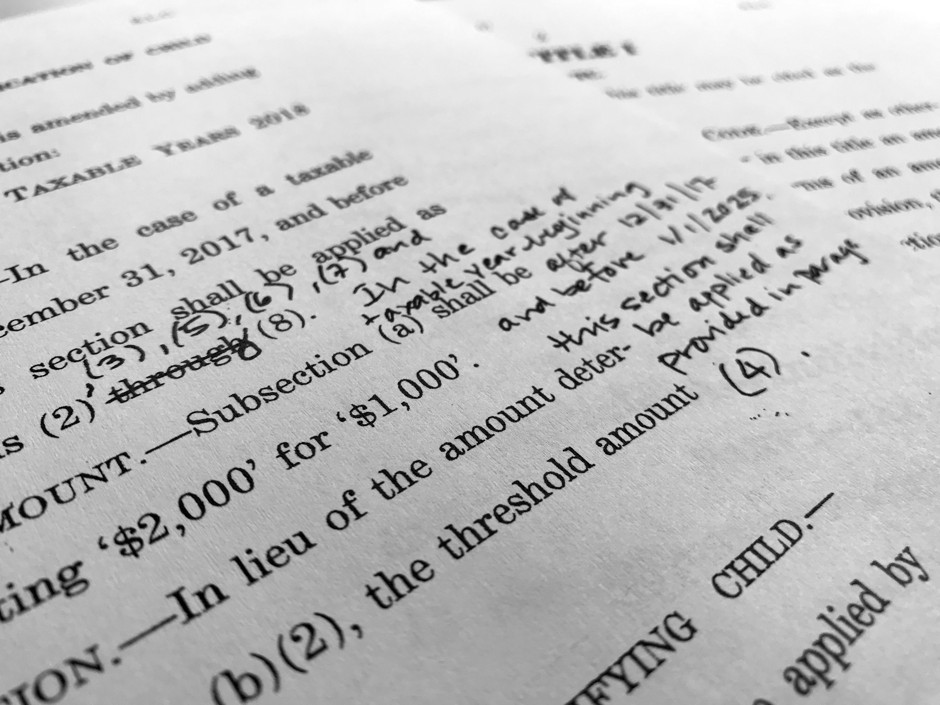 ICATION OF CHILD
is amended by adding
tion:
TAXABLE YEARS 2018
—In the case of a taxable
ember 31, 2017, and before
section shall be applied as
(3), (5), (6), (7) and
s (2), through (8).
In the case of
taxable year beginning
after 12/31/17
and before 1/1/2025.
this section shall
be applied as
Provided in parag
(4).
MOUNT.—Subsection (a) shall be
ting ‘$2,000’ for ‘$1,000’.
TION.—In lieu of the amount deter-
(b)(2), the threshold amount
FYING CHILD.—
applied by
TITLE I
this title may be cited as the
CODE.—Except as other-
in this title an
of an
ovision,